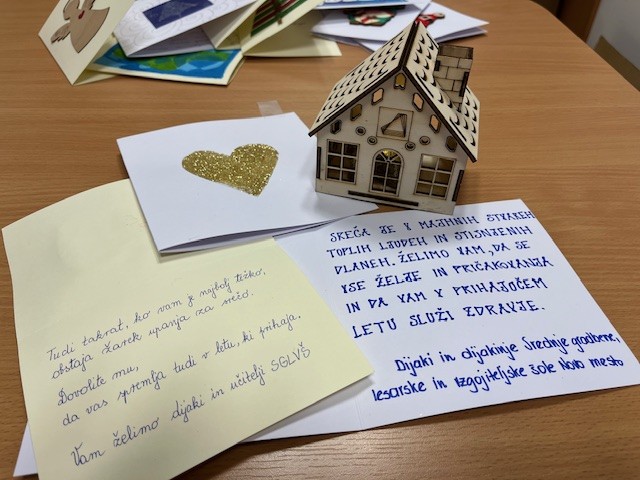 Tudi takrat, ko vam je najbolj težko,
obstaja žarek upanja za srečo.
Dovolite mu,
da vas spremlja tudi v letu, ki prihaja,
Vam želimo dijaki in učitelji SGLVŠ
SREČA JE V MAJHNIH STVAREH
TOPLIH LJUDEH IN STISNJENIH
DLANEH. ŽELIMO VAM, DA SE
VSE ŽELJE IN PRIČAKOVANJA
IN DA VAM V PRIHAJOČEM
LETU SLUŽI ZDRAVJE.
Dijaki in dijakinje Srednje gradbene,
lesarske in vzgojiteljske šole Novo mesto